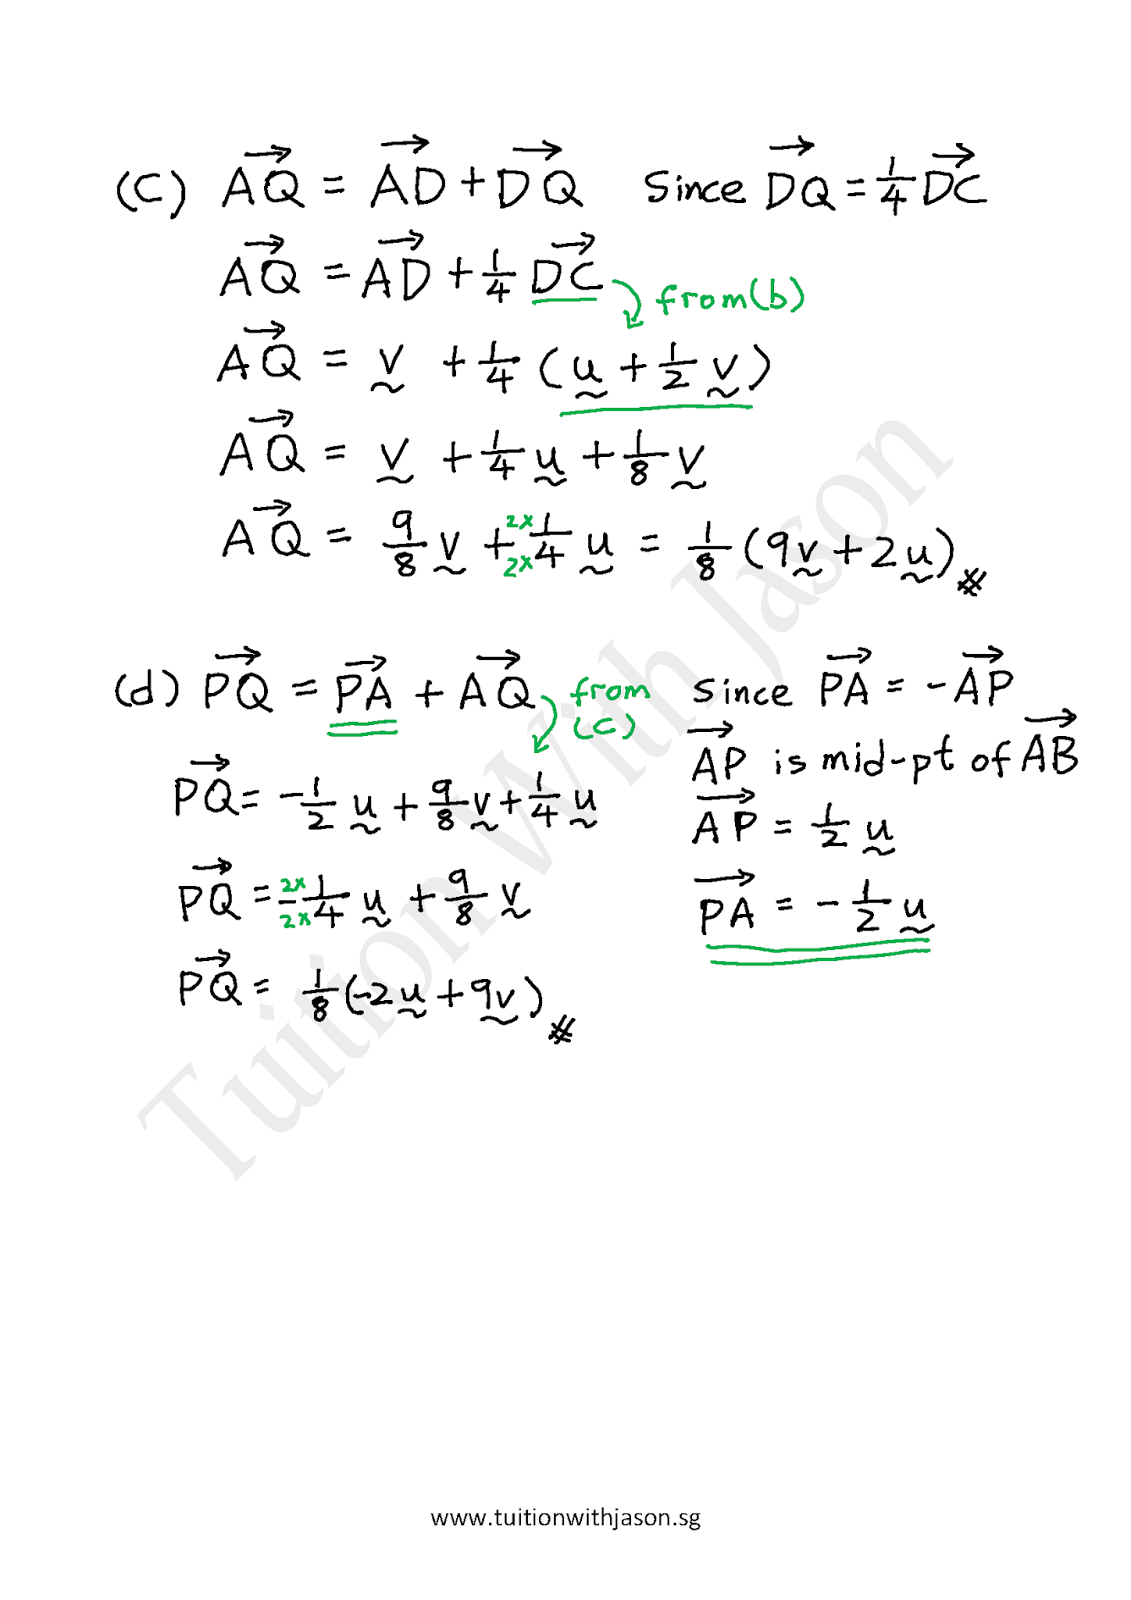 (c) $\overrightarrow{AQ} = \overrightarrow{AD} + \overrightarrow{DQ}$ Since $\overrightarrow{DQ} = \frac{1}{4}\overrightarrow{DC}$
$\overrightarrow{AQ} = \overrightarrow{AD} + \frac{1}{4}\overrightarrow{DC}$ from (b)
$\overrightarrow{AQ} = \underset{\sim}{v} + \frac{1}{4}(\underset{\sim}{u} + \frac{1}{2}\underset{\sim}{v})$
$\overrightarrow{AQ} = \underset{\sim}{v} + \frac{1}{4}\underset{\sim}{u} + \frac{1}{8}\underset{\sim}{v}$
$\overrightarrow{AQ} = \frac{9}{8}\underset{\sim}{v} + \frac{2×1}{2×4}\underset{\sim}{u} = \frac{1}{8}(9\underset{\sim}{v} + 2\underset{\sim}{u})$ #
(d) $\overrightarrow{PQ} = \overrightarrow{PA} + \overrightarrow{AQ}$ from (c)
$\overrightarrow{PQ} = -\frac{1}{2}\underset{\sim}{u} + \frac{9}{8}\underset{\sim}{v} + \frac{1}{4}\underset{\sim}{u}$
$\overrightarrow{PQ} = -\frac{2×1}{2×4}\underset{\sim}{u} + \frac{9}{8}\underset{\sim}{v}$
$\overrightarrow{PQ} = \frac{1}{8}(-2\underset{\sim}{u} + 9\underset{\sim}{v})$ #
Since $\overrightarrow{PA} = -\overrightarrow{AP}$
$\overrightarrow{AP}$ is mid-pt of $\overrightarrow{AB}$
$\overrightarrow{AP} = \frac{1}{2}\underset{\sim}{u}$
$\overrightarrow{PA} = -\frac{1}{2}\underset{\sim}{u}$
Tuition With Jason
www.tuitionwithjason.sg